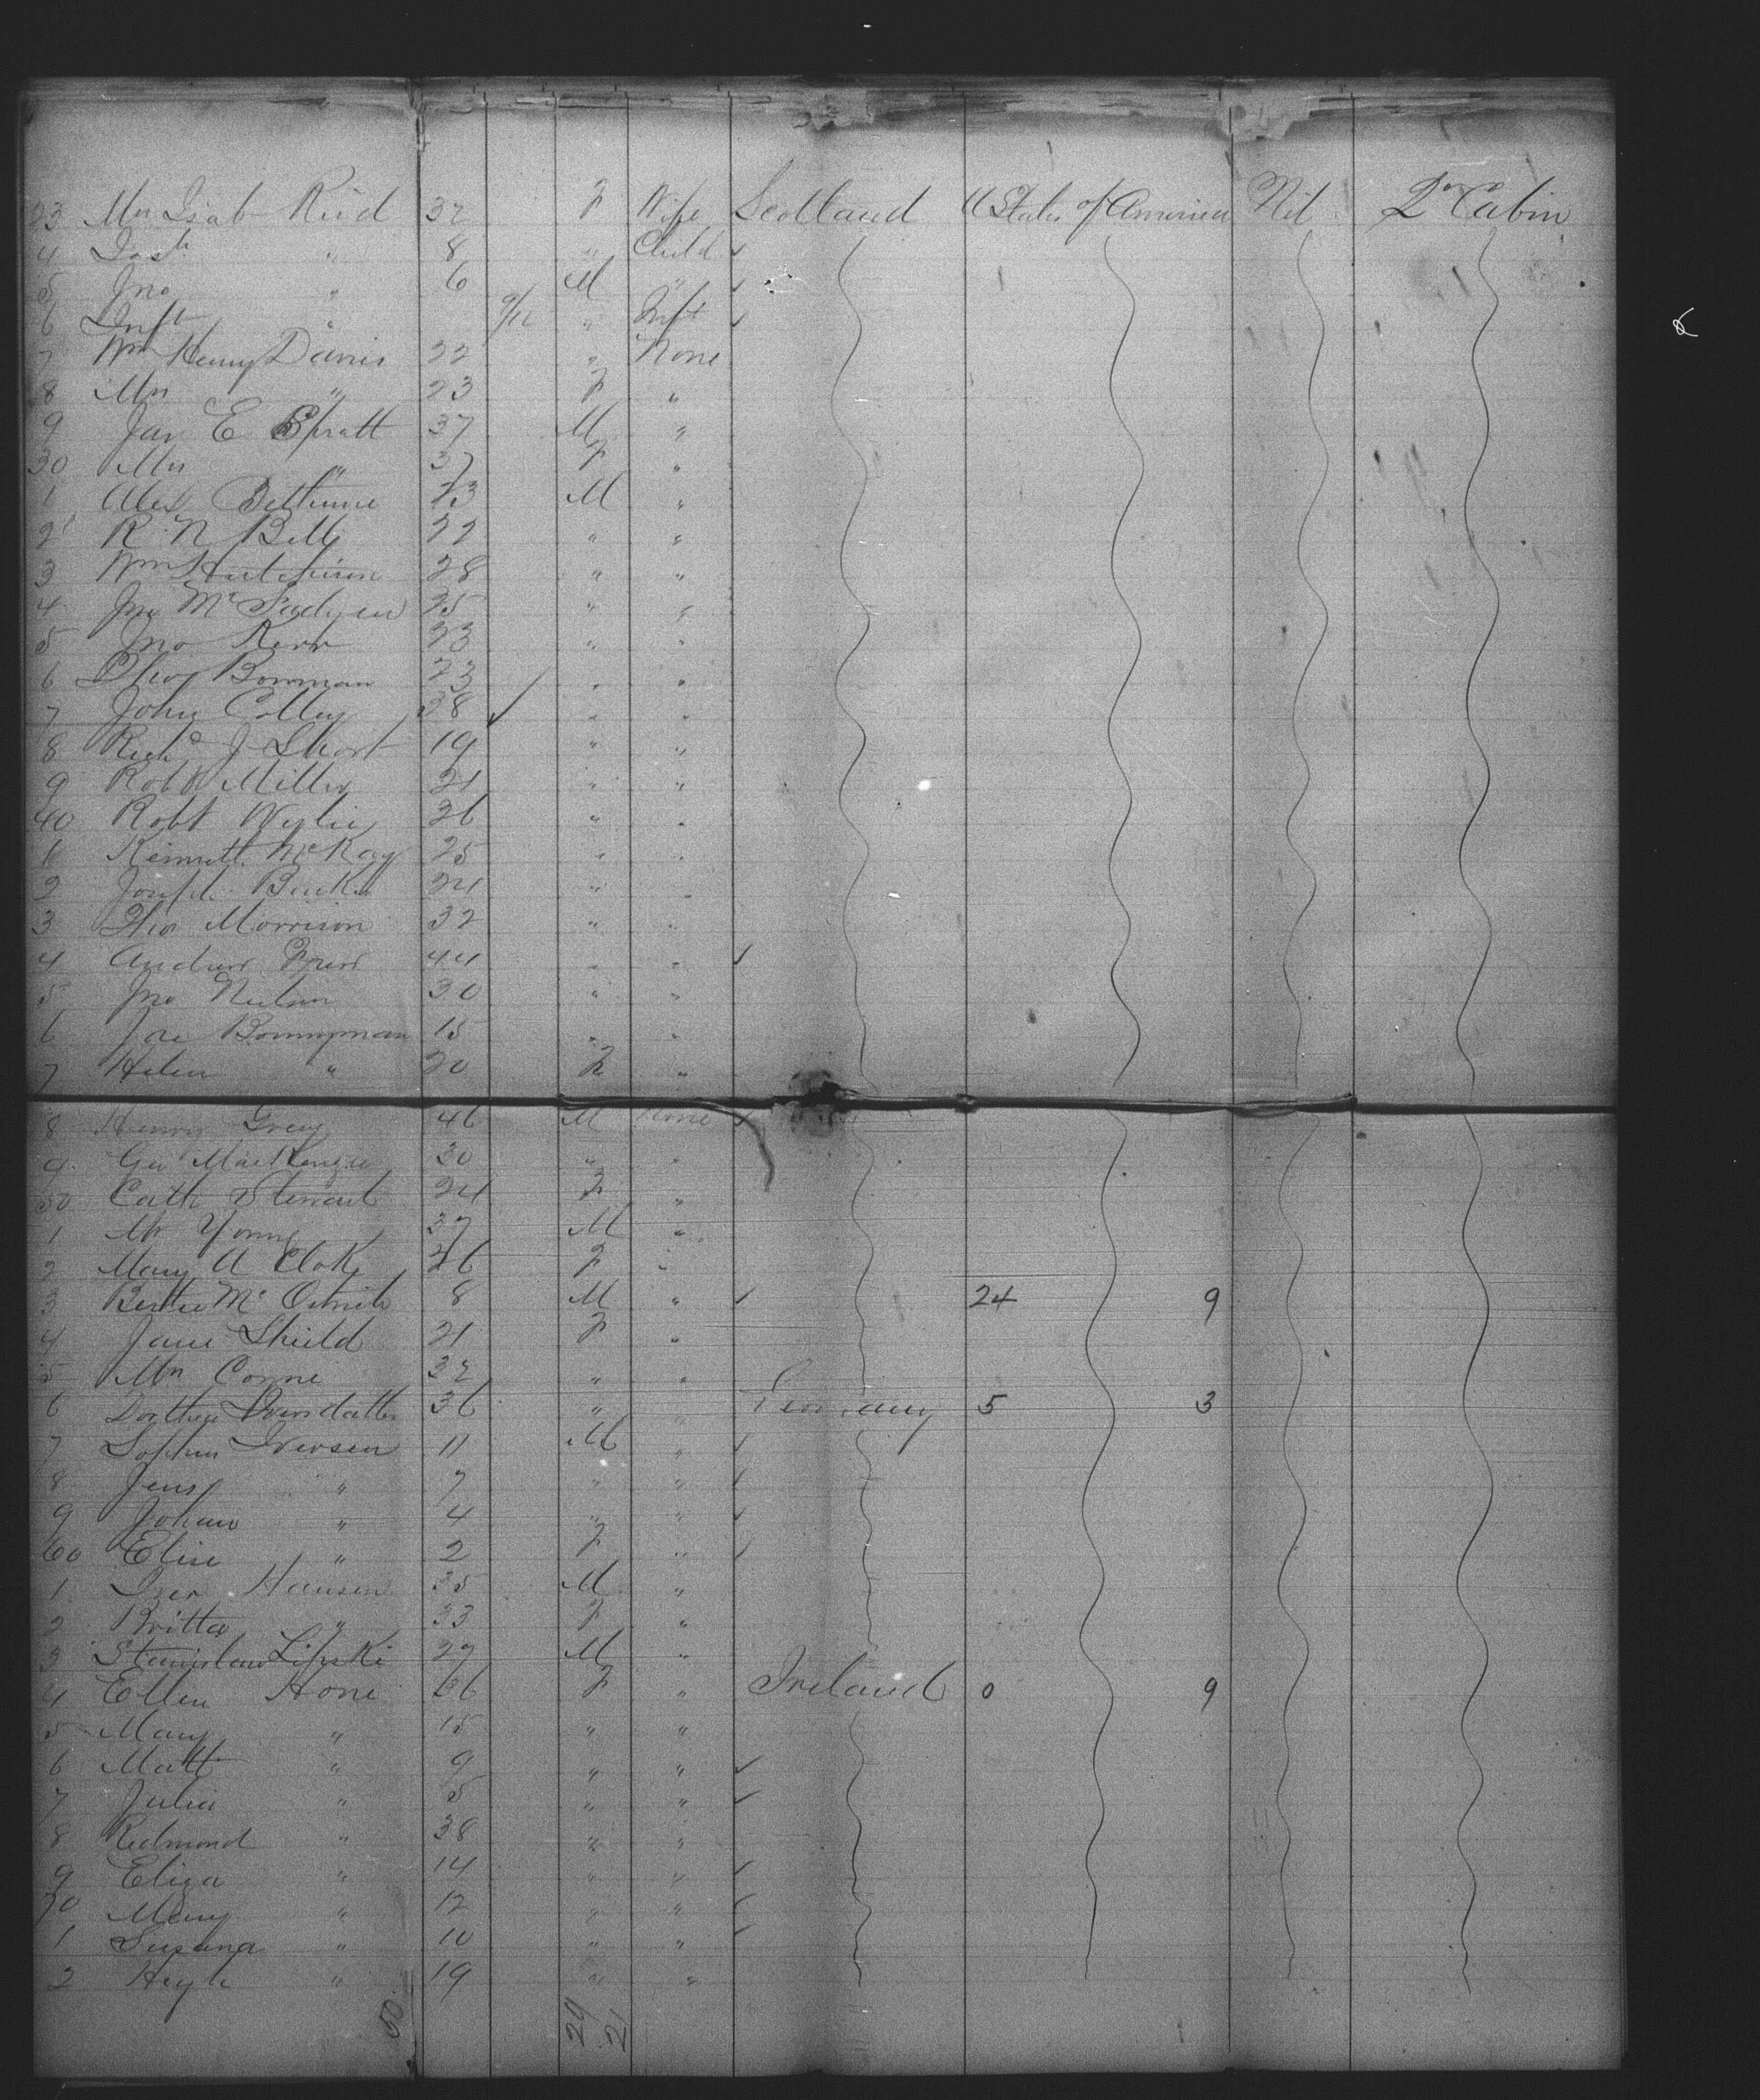 23 Mrs Isab Reid 32 F Wife Scotland U States of America Nil 2nd Cabin
4 Isab " 8 " Child ✓
5 Jno " 6 M " ✓
6 Inft " 9/12 " Inft ✓
7 Wm Henry Davis 22 " None
8 Mrs " 23 F "
9 Jas E Spratt 37 M "
30 Mrs " 37 F "
1 Alex Bethune 23 M "
2 R. N Bell 22 " "
3 Wm Hutchison 28 " "
4 Jno McFadyen 25 " "
5 Jno Kerr 23 " "
6 Thos Bowman 23 " "
7 John Colley 38 ✓ " "
8 Richd J Short 19 " "
9 Robt Miller 21 " "
40 Robt Wylie 26 " "
1 Kennett McKay 25 " "
2 Joseph 24 " "
3 Thos Morrison 32 " "
4 Andrew 44 " " ✓
5 Jno 30 " "
6 Jas Bonnyman 15 " "
7 Helen " 20 F "
8 Henry Grey 46 M None ✓
9 Geo MacKenzie 30 " "
50 Cath Stewart 24 F "
1 Mr Young 37 M "
2 Mary A 26 F "
3 Bertie Mc 8 M " ✓ 24 9
4 Jane Shield 21 F "
5 Mrs Corrie 32 " "
6 Dorthea 36 " " Germany 5 3
7 Sophus Iversen 11 M " ✓
8 Jens " 7 " " ✓
9 Johan " 4 " " ✓
60 Elise " 2 F " ✓
1 Iver Hansen 35 M "
2 Britta " 33 F "
3 Stanislaw Lipski 27 M "
4 Ellen Hone 36 F " Ireland 0 9
5 Mary " 15 " "
6 Matt " 9 " " ✓
7 Julia " 5 " " ✓
8 Redmond " 38 " "
9 Eliza " 14 " " ✓
70 Mary " 12 " " ✓
1 Susana " 10 " " ✓
2 Hugh " 19 " "
50 29 21